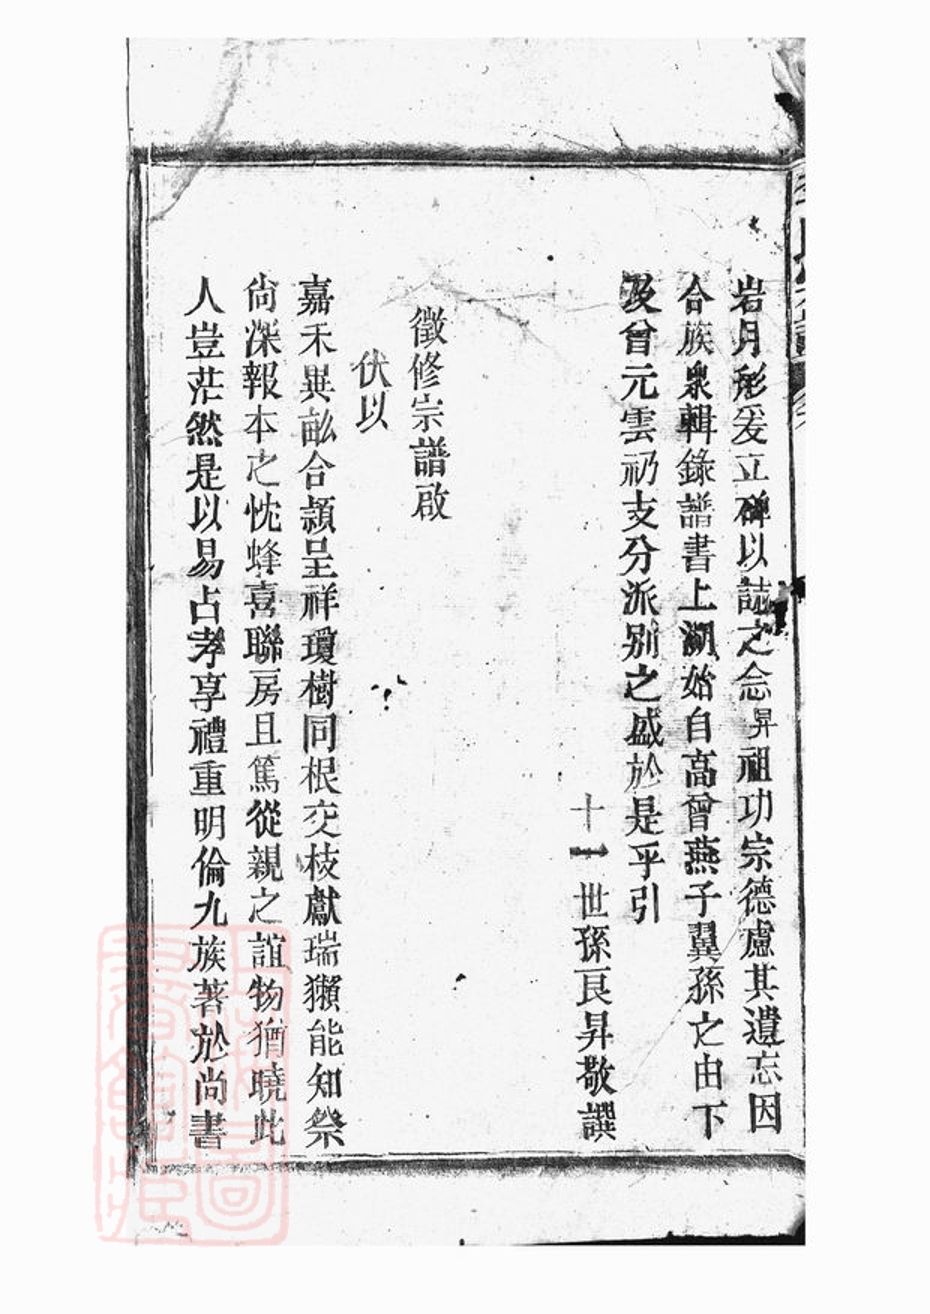 岩月彤爰立碑以誌之念昇祖功宗德慮其遺忘因
合族衆輯錄譜書上溯始自高曾燕子翼孫之由下
及曾元雲礽支分派别之盛於是乎引
十一世孫良昇敬譔
徵修宗譜啟
伏以
嘉禾異畝合穎呈祥瓊樹同根交枝獻瑞獺能知祭
尙深報本之忱蜂喜聯房且篤從親之誼物猶曉此
人豈茫然是以易占孝享禮重明倫九族著於尚書